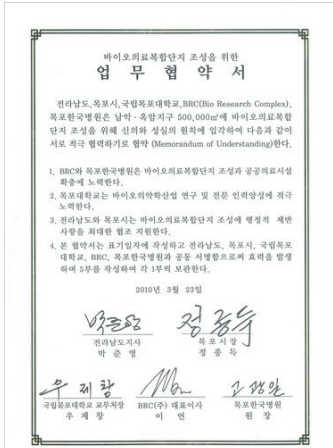 바이오의료복합단지 조성을 위한
업 무 협 약 서
전라남도,목포시,국립목포대학교,BRC(Bio Research Complex),
목포한국병원은 남악·옥암지구 500,000㎡에 바이오의료복합
단지 조성을 위해 신의와 성실의 원칙에 입각하여 다음과 같이
서로 적극 협력하기로 협약 (Memorandum of Understanding)한다.
1. BRC와 목포한국병원은 바이오의료복합단지 조성과 공공의료시설
확충에 노력한다.
2. 목포대학교는 바이오의약학산업 연구 및 전문 인력양성에 적극
노력한다.
3. 전라남도와 목포시는 바이오의료복합단지 조성에 행정적 제반
사항을 최대한 협조 지원한다.
4. 본 협약서는 표기일자에 작성하고 전라남도, 목포시, 국립목포
대학교, BRC, 목포한국병원과 공동 서명함으로써 효력을 발생
하며 5부를 작성하여 각 1부씩 보관한다.
2010년 3월 23일
전라남도지사
박 준 영
목 포 시 장
정 종 득
우 제 창
고 광 일
국립목포대학교 교무처장
우 제 창
BRC(주) 대표이사
이 언
목포한국병원
원 장